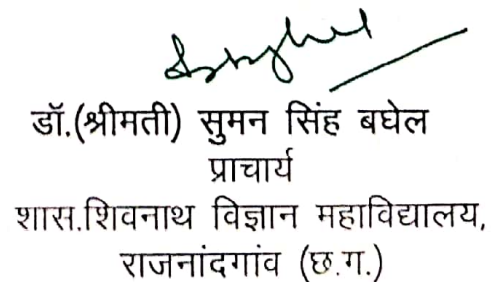 डॉ.(श्रीमती) सुमन सिंह बघेल
प्राचार्य
शास.शिवनाथ विज्ञान महाविद्यालय,
राजनांदगांव (छ.ग.)